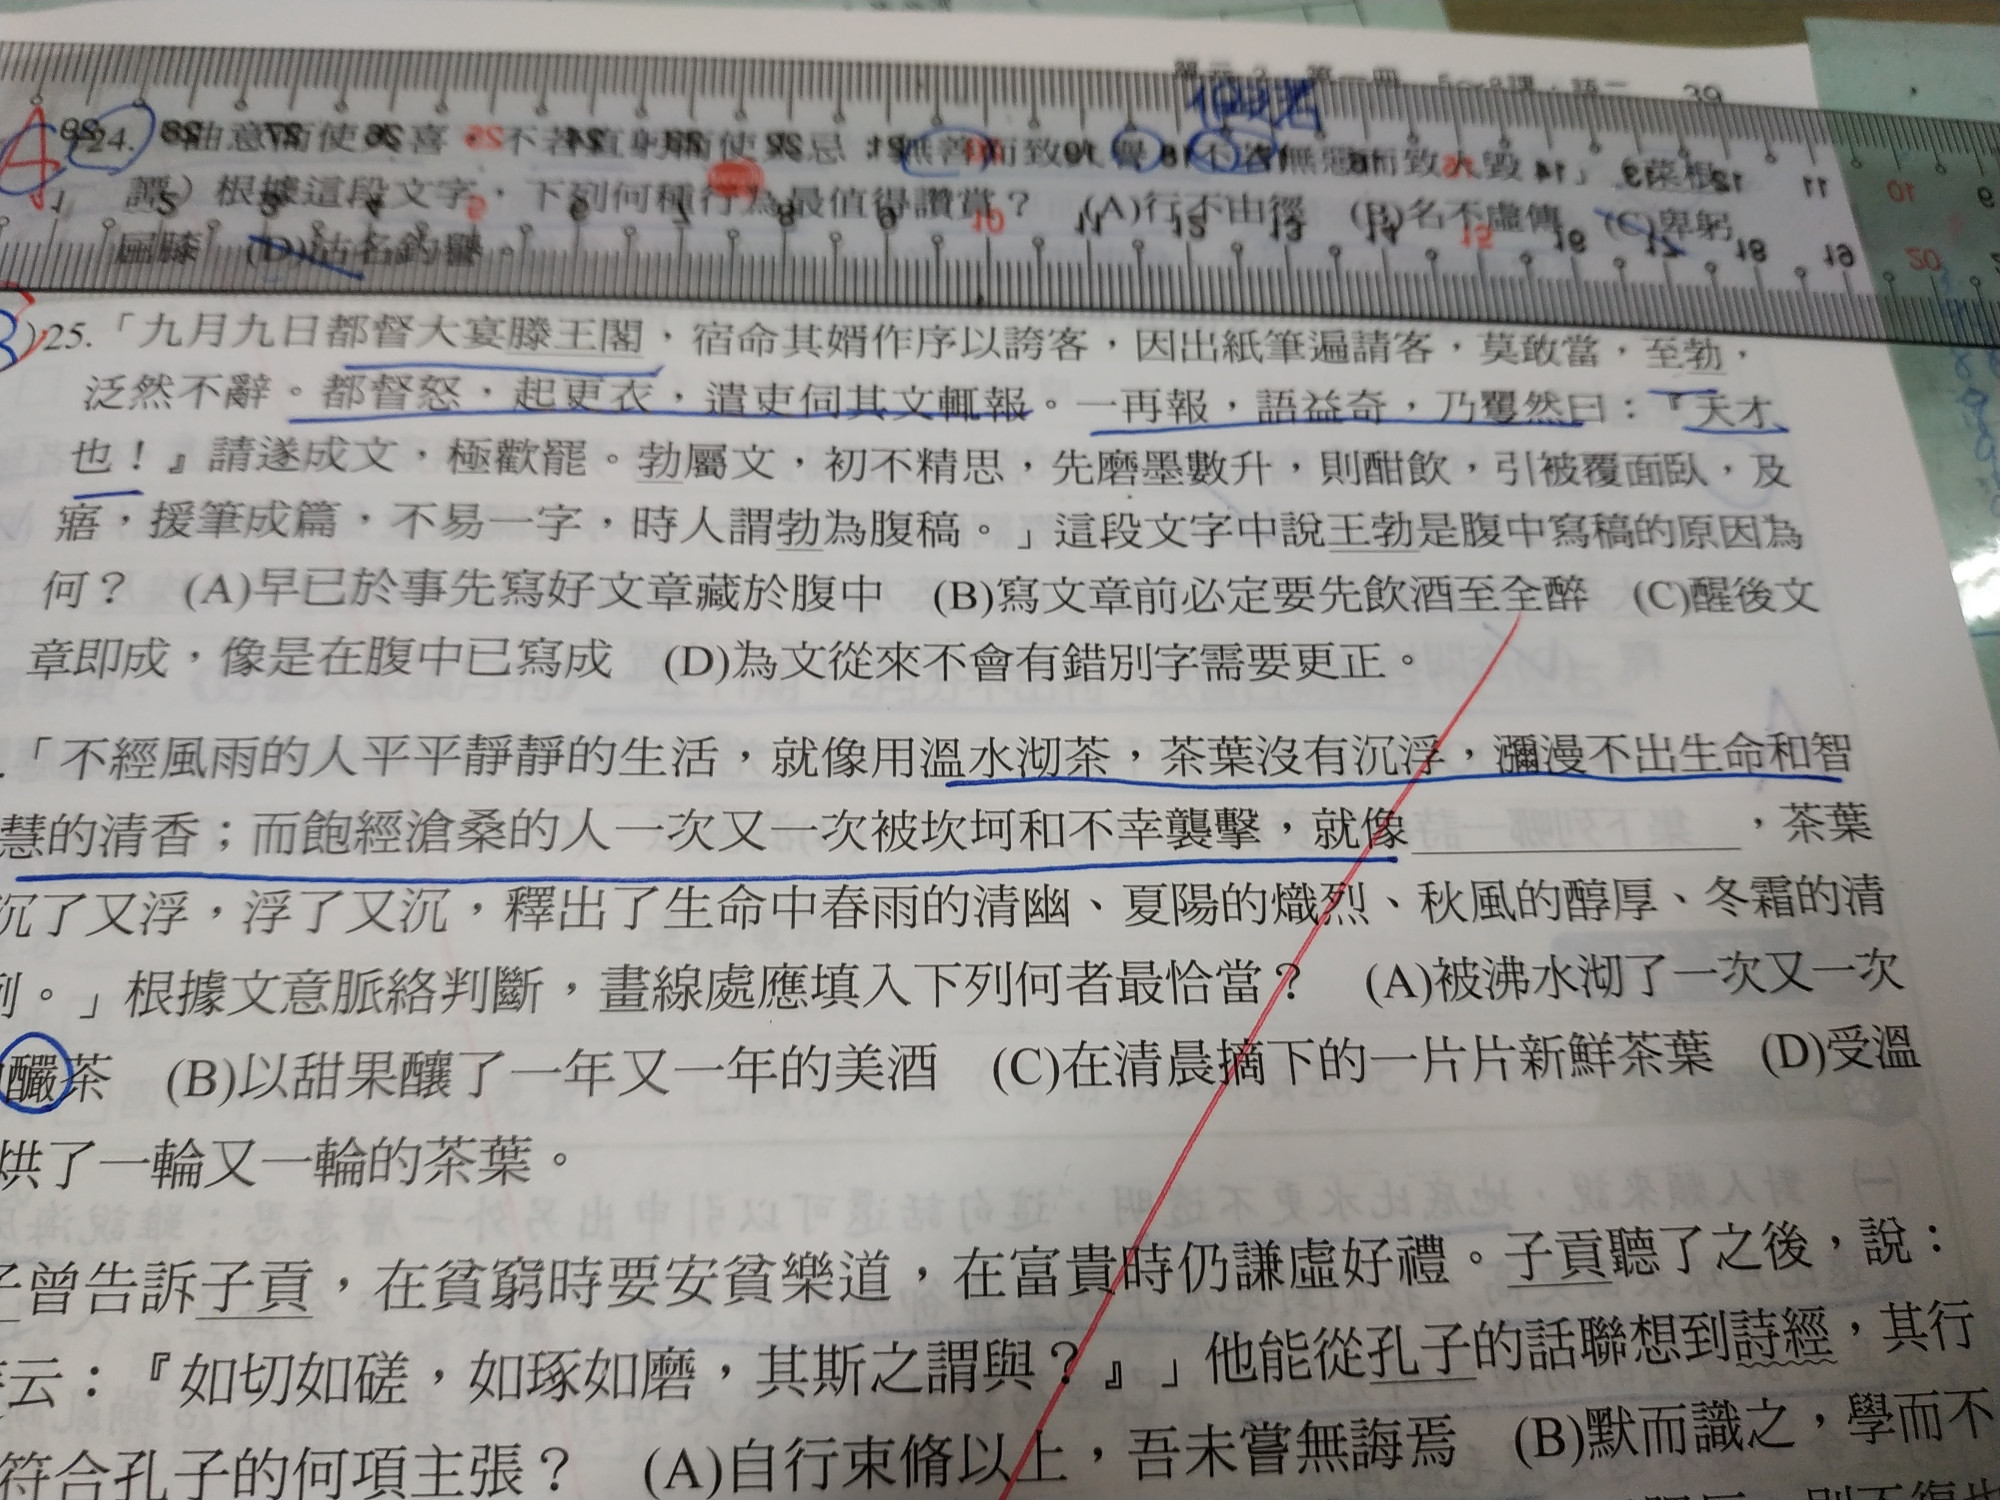 單元2 第一冊 5~8課、語二 39
24. 曲意而使人喜，不若直躬而使人忌；無善而致人譽，不若無惡而致人毀。」（菜根
譚）根據這段文字，下列何種行為最值得讚賞？ (A)行不由徑 (B)名不虛傳 (C)卑躬
屈膝 (D)沽名釣譽。
)25.「九月九日都督大宴滕王閣，宿命其婿作序以誇客，因出紙筆遍請客，莫敢當，至勃，
泛然不辭。都督怒，起更衣，遣吏伺其文輒報。一再報，語益奇，乃矍然曰：『天才
也！』請遂成文，極歡罷。勃屬文，初不精思，先磨墨數升，則酣飲，引被覆面臥，及
寤，援筆成篇，不易一字，時人謂勃為腹稿。」這段文字中說王勃是腹中寫稿的原因為
何？ (A)早已於事先寫好文章藏於腹中 (B)寫文章前必定要先飲酒至全醉 (C)醒後文
章即成，像是在腹中已寫成 (D)為文從來不會有錯別字需要更正。
.「不經風雨的人平平靜靜的生活，就像用溫水沏茶，茶葉沒有沉浮，瀰漫不出生命和智
慧的清香；而飽經滄桑的人一次又一次被坎坷和不幸襲擊，就像＿＿＿＿＿＿，茶葉
沉了又浮，浮了又沉，釋出了生命中春雨的清幽、夏陽的熾烈、秋風的醇厚、冬霜的清
冽。」根據文意脈絡判斷，畫線處應填入下列何者最恰當？ (A)被沸水沏了一次又一次
釅茶 (B)以甜果釀了一年又一年的美酒 (C)在清晨摘下的一片片新鮮茶葉 (D)受溫
烘了一輪又一輪的茶葉。
子曾告訴子貢，在貧窮時要安貧樂道，在富貴時仍謙虛好禮。子貢聽了之後，說：
云：『如切如磋，如琢如磨，其斯之謂與？』」他能從孔子的話聯想到詩經，其行
符合孔子的何項主張？ (A)自行束脩以上，吾未嘗無誨焉 (B)默而識之，學而不